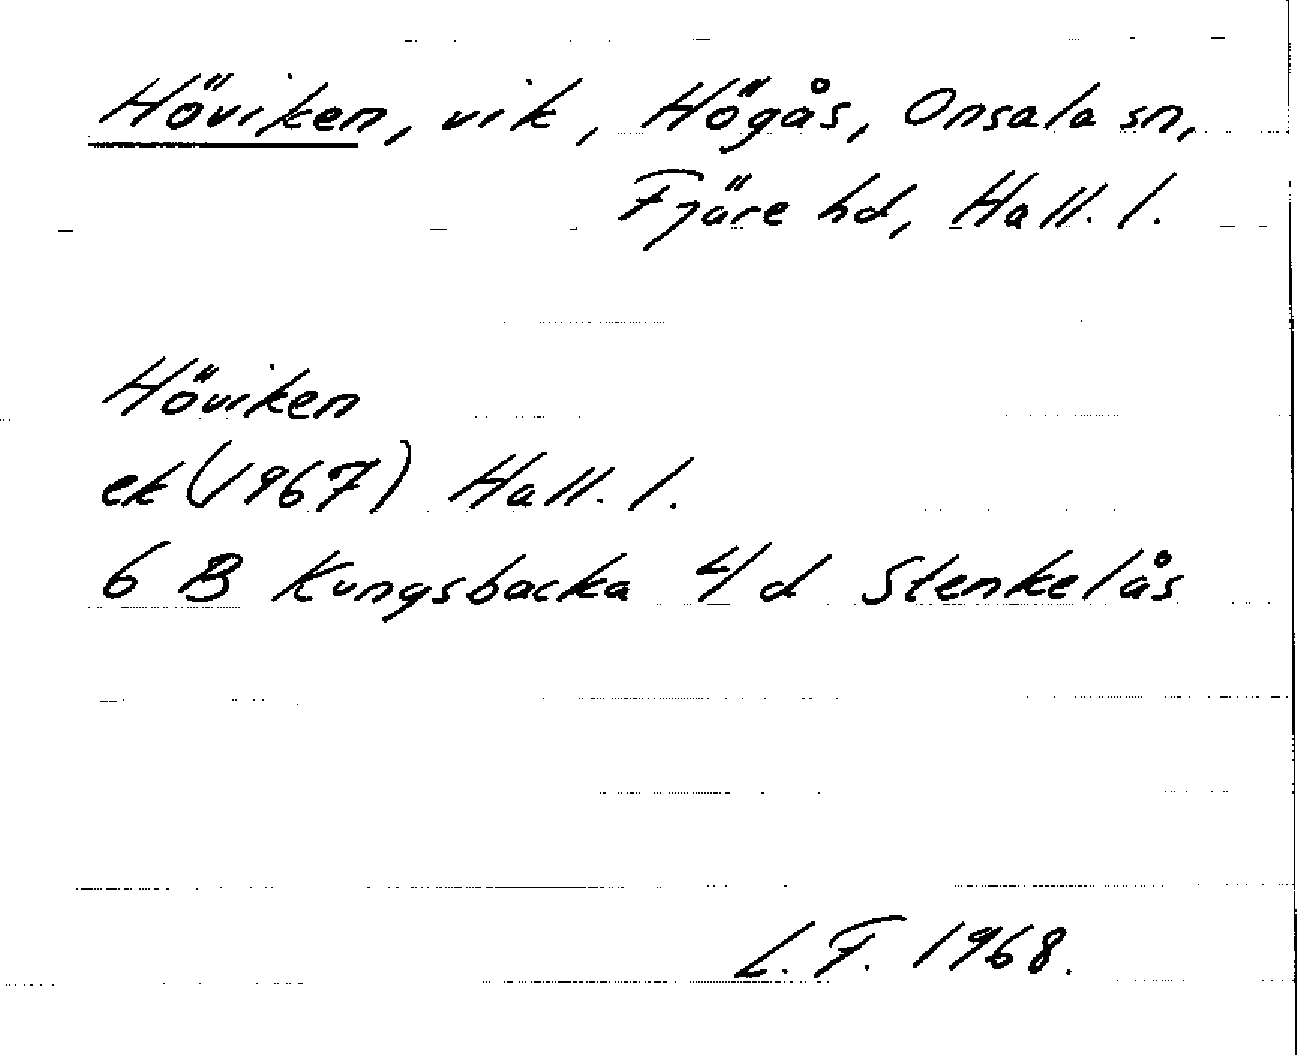 Höviken, vik, Högås, Onsala sn,
Fjäre hd, Hall. l.
Höviken
ek (1967) Hall. l.
6 B Kungsbacka 4 d Stenkelås
L. F. 1968.